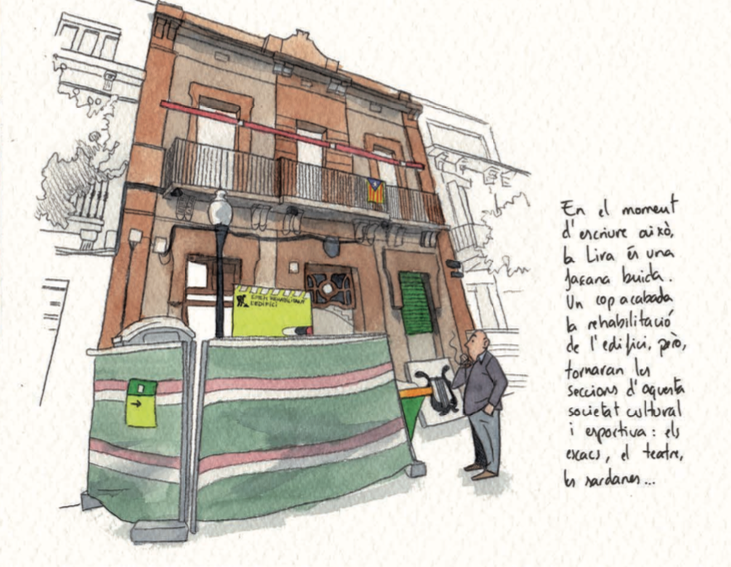 ESTEM REHABILITANT
L'EDIFICI
En el moment
d'escriure això,
la Lira és una
façana buida.
Un cop acabada
la rehabilitació
de l'edifici, però,
tornaran les
seccions d'aquesta
societat cultural
i esportiva: els
escacs, el teatre,
les sardanes...